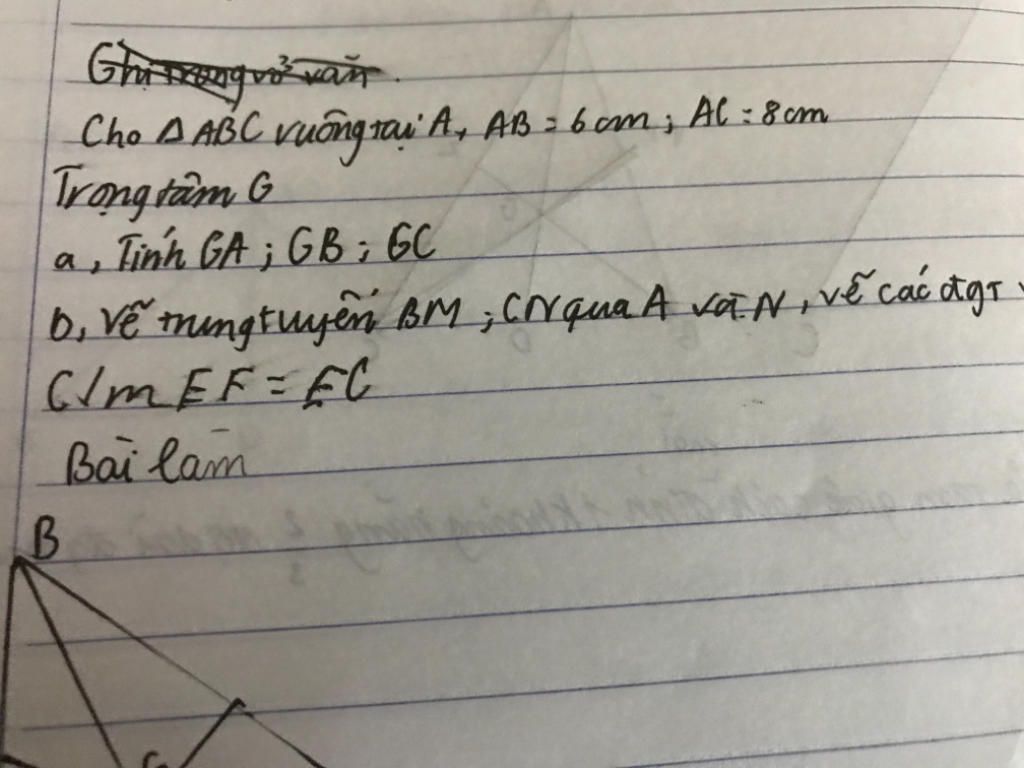 Ghi trong vở văn.
Cho Δ ABC vuông tại A, AB = 6 cm; AC = 8 cm
Trọng tâm G
a, Tính GA; GB; GC
b, Vẽ trung tuyến BM; CN qua A và N, vẽ các đgT
C/m EF = EC
Bài làm
B
G